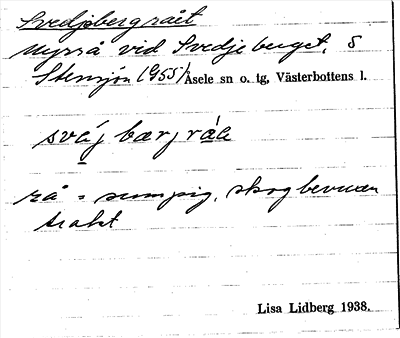 Svedjebergrået
Myrrå vid Svedjeberget, S
Stensjön (955) Åsele sn o. tg, Västerbottens l.
svä́j bærj råe
rå = sumpig, skogbevuxen
trakt
Lisa Lidberg 1938.